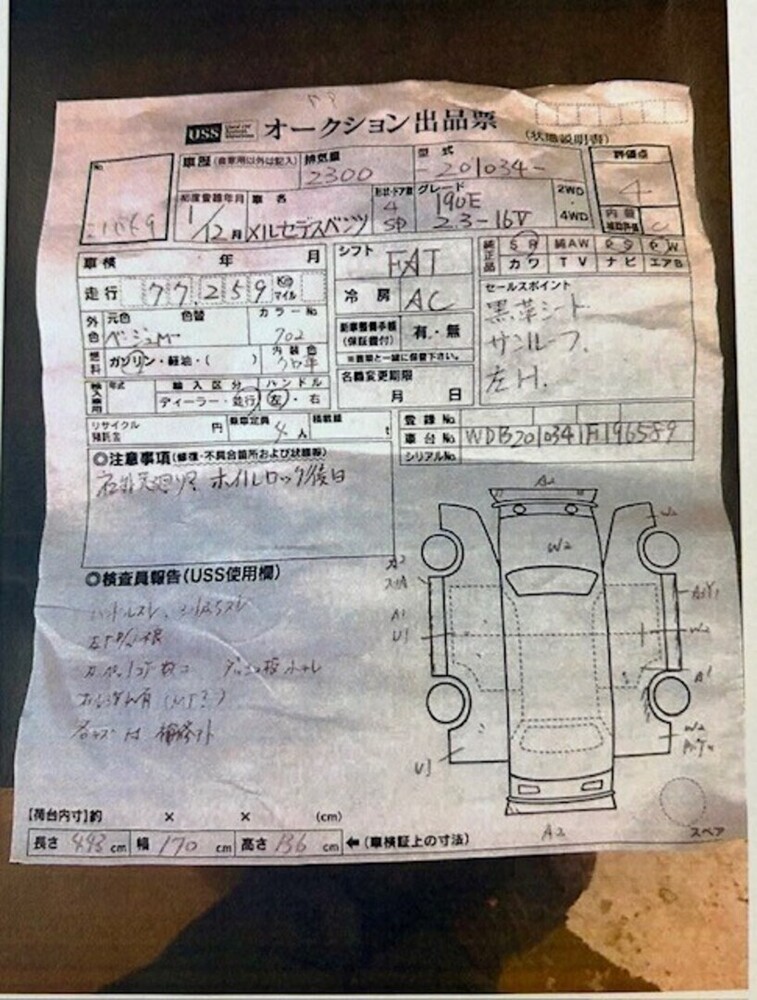 USS オークション出品票
(状態説明書)
No.
車歴(自家用以外は記入)
排気量
2300
型式
-201034-
評価点
4
初度登録年月
1/12月
車名
メルセデスベンツ
形状・ドア数
4
SD
グレード
190E
2.3-16V
2WD
・
4WD
内装
補助評価
C
車検 年 月
シフト
FAT
純正品
S R 純AW P S P W
カワ TV ナビ エアB
走行 77,259 km マイル
冷房 AC
セールスポイント
黒革シート
サンルーフ
左H.
外色 元色 色替 カラーNo
ベージュM 702
新車整備手帳
(保証書付)
有・無
※書類と一緒に保管下さい。
燃料 ガソリン・軽油・( )
内装色
クロ革
名義変更期限
月 日
輸入車用 年式 輸入区分 ハンドル
ディーラー・並行 左・右
リサイクル
預託金 円
乗車定員 4人
積載量 t
登録No
車台No WDB2010341F196589
シリアルNo
◎注意事項(修復・不具合箇所および状態等)
ホイルロック後日
◎検査員報告(USS使用欄)
ハンドルスレ
A2
W2
W2
A2
A1
U1
W2
A1
W2
U1
A2
スペア
【荷台内寸】約 × × (cm)
長さ 443 cm 幅 170 cm 高さ 136 cm ←(車検証上の寸法)